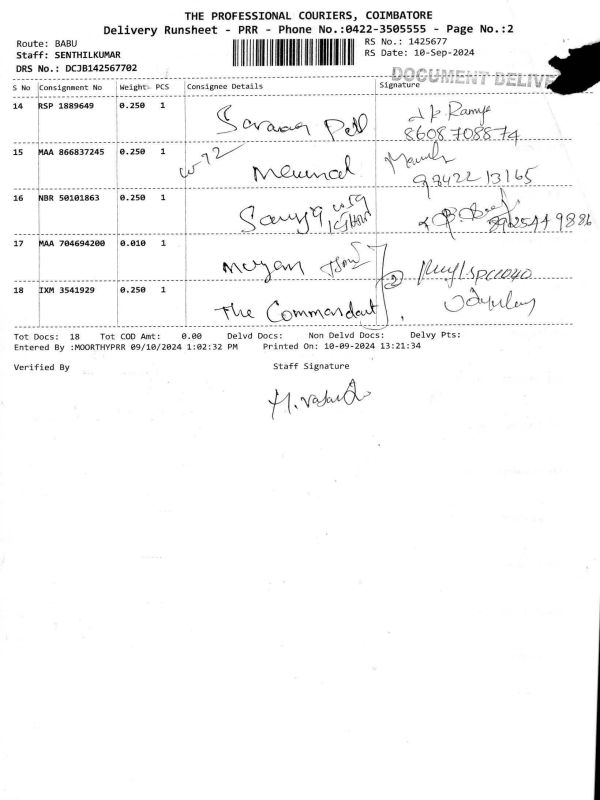 THE PROFESSIONAL COURIERS, COIMBATORE
Delivery Runsheet - PRR - Phone No.:0422-3505555 - Page No.:2
Route: BABU
Staff: SENTHILKUMAR
DRS No.: DCJB142567702
RS No.: 1425677
RS Date: 10-Sep-2024
DOCUMENT DELIVE
S No Consignment No Weight PCS Consignee Details Signature
14 RSP 1889649 0.250 1
8608708874
15 MAA 866837245 0.250 1
98422 13165
16 NBR 50101863 0.250 1
17 MAA 704694200 0.010 1
18 IXM 3541929 0.250 1 The Commandant
Tot Docs: 18 Tot COD Amt: 0.00 Delvd Docs: Non Delvd Docs: Delvy Pts:
Entered By :MOORTHYPRR 09/10/2024 1:02:32 PM Printed On: 10-09-2024 13:21:34
Verified By Staff Signature